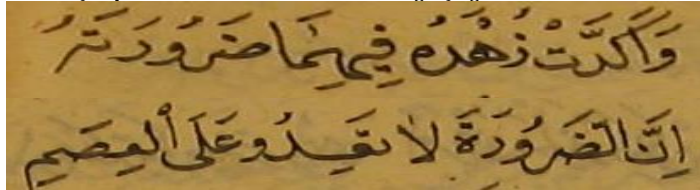 وَأَكَّدَتْ زُهْدَهُ فِيهَا ضَرُورَتُهُ
اِنَّ الضَّرُورَةَ لَا تَعْدُو عَلَى الْعِصَمِ